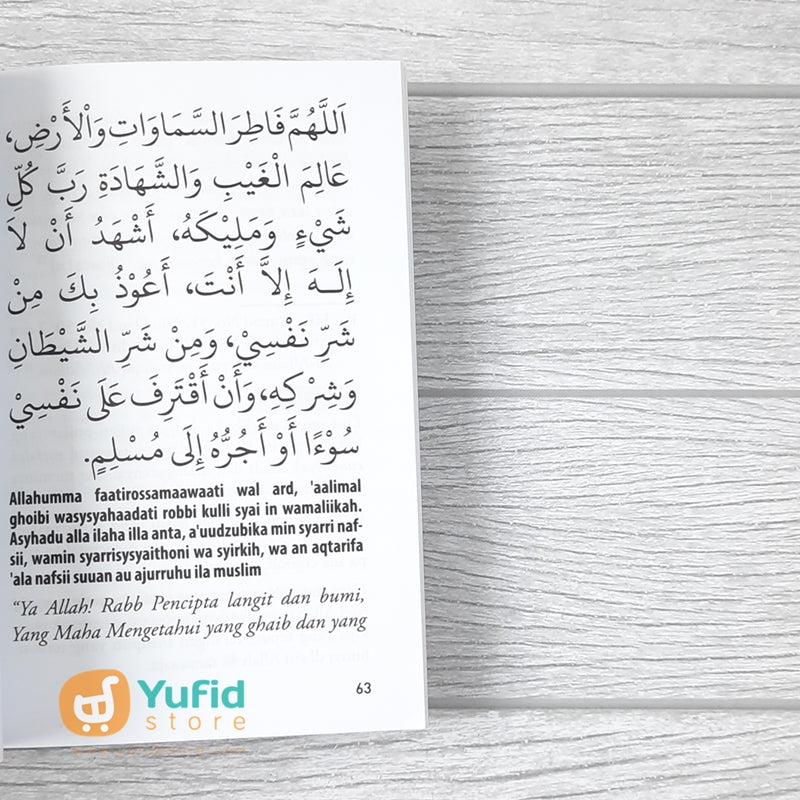 اَللَّهُمَّ فَاطِرَ السَّمَاوَاتِ وَالْأَرْضِ،
عَالِمَ الْغَيْبِ وَالشَّهَادَةِ رَبَّ كُلِّ
شَيْءٍ وَمَلِيْكَهُ، أَشْهَدُ أَنْ لاَ
إِلَـهَ إِلاَّ أَنْتَ، أَعُوْذُ بِكَ مِنْ
شَرِّ نَفْسِيْ، وَمِنْ شَرِّ الشَّيْطَانِ
وَشِرْكِهِ، وَأَنْ أَقْتَرِفَ عَلَى نَفْسِيْ
سُوْءًا أَوْ أَجُرُّهُ إِلَى مُسْلِمٍ.
Allahumma faatirossamaawaati wal ard, 'aalimal
ghoibi wasysyahaadati robbi kulli syai in wamaliikah.
Asyhadu alla ilaha illa anta, a'uudzubika min syarri naf-
sii, wamin syarrisysyaithoni wa syirkih, wa an aqtarifa
'ala nafsii suuan au ajurruhu ila muslim
“Ya Allah! Rabb Pencipta langit dan bumi,
Yang Maha Mengetahui yang ghaib dan yang
63
Yufid
store